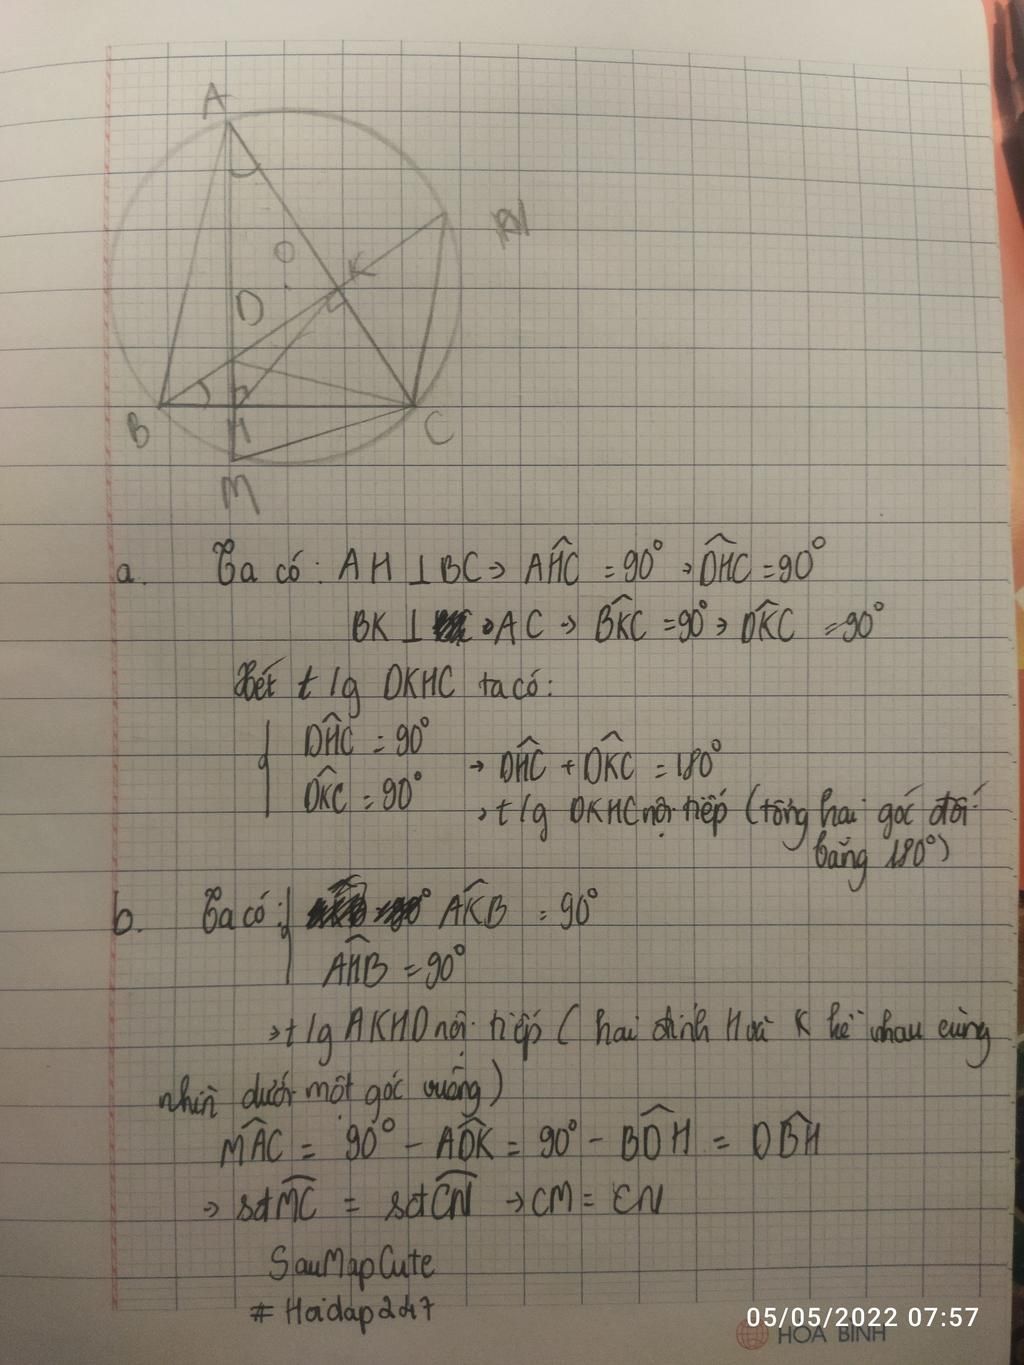 A
N
O
K
D
B
H
C
M
a. Ta có: AH ⊥ BC → AĤC = 90° → DĤC = 90°
BK ⊥ AC → BK̂C = 90° → DK̂C = 90°
Xét t/g DKHC ta có:
DĤC = 90°
DK̂C = 90°
→ DĤC + DK̂C = 180°
→ t/g DKHC nội tiếp (tổng hai góc đối
bằng 180°)
b. Ta có: AK̂B = 90°
AĤB = 90°
→ t/g AKHD nội tiếp (hai đỉnh H và K kề nhau cùng
nhìn dưới một góc vuông)
MÂC = 90° - AD̂K = 90° - BD̂H = DB̂H
→ sđ M͡C = sđ C͡N → CM = CN
SauMapCute
# Hoidap247
05/05/2022 07:57
HOA BINH